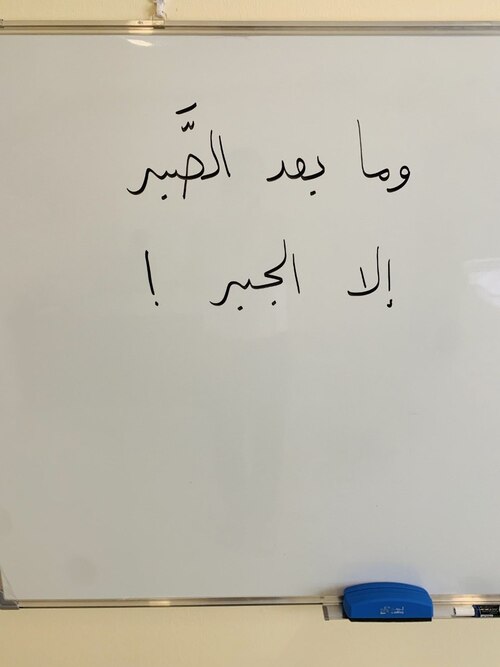 وما بعد الصَّبر
إلا الجبر !